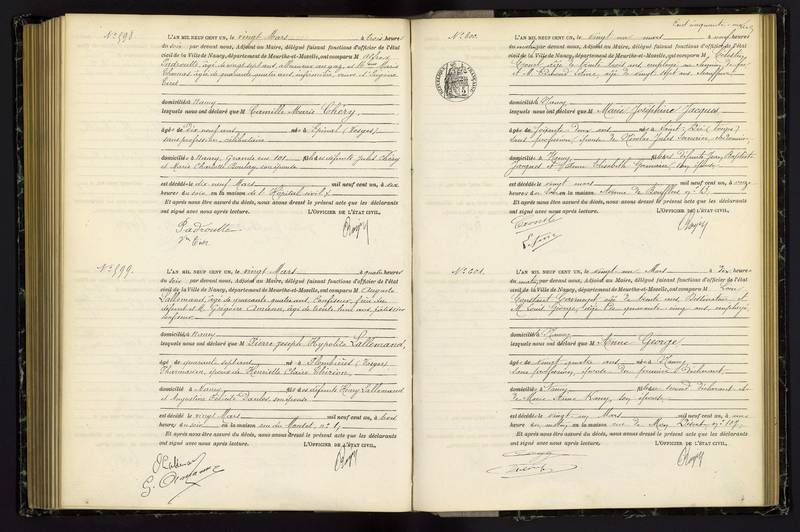 N° 598.
L'AN MIL NEUF CENT UN, le vingt Mars à trois heures
du soir par devant nous, Adjoint au Maire, délégué faisant fonctions d'officier de l'état
civil de la Ville de Nancy, département de Meurthe-et-Moselle, ont comparu M Alfred
Padroutte, âgé de vingt sept ans, allumeur au gaz, et Marie
Thomas âgée de quarante quatre ans, infirmière, veuve d'Eugène
domicilié à Nancy
lesquels nous ont déclaré que M Camille Marie Chéry
âgé de Dix neuf ans né à Epinal (Vosges)
sans profession, célibataire
domicilié à Nancy, Grande rue 101 fils de défunts Jules Chéry
et Marie Charlotte Boulay, son épouse
est décédé le dix neuf Mars mil neuf cent un, à six
heures du soir en la maison de l'Hôpital civil
Et après nous être assuré du décès, nous avons dressé le présent acte que les déclarants
ont signé avec nous après lecture. L'OFFICIER DE L'ÉTAT CIVIL,
Padroutte
N° 599.
L'AN MIL NEUF CENT UN, le vingt Mars à quatre heures
du soir par devant nous, Adjoint au Maire, délégué faisant fonctions d'officier de l'état
civil de la Ville de Nancy, département de Meurthe-et-Moselle, ont comparu M Auguste
Lallemand, âgé de quarante quatre ans Confiseur, frère du
défunt et M Grégoire âgé de trente ans pâtissier
confiseur
domicilié à Nancy
lesquels nous ont déclaré que M Pierre Joseph Hypolite Lallemand,
âgé de quarante sept ans né à Plombières (Vosges)
Pharmacien, époux de Henriette Claire Thirion
domicilié à Nancy fils de défunts Henry Lallemand
et Augustine son épouse
est décédé le vingt Mars mil neuf cent un, à trois
heures du soir en la maison rue du Montet, n° 1
Et après nous être assuré du décès, nous avons dressé le présent acte que les déclarants
ont signé avec nous après lecture. L'OFFICIER DE L'ÉTAT CIVIL,
Lallemand
Cent cinquante
N° 600.
L'AN MIL NEUF CENT UN, le vingt un mars à neuf heures
du matin par devant nous, Adjoint au Maire, délégué faisant fonctions d'officier de l'état
civil de la Ville de Nancy, département de Meurthe-et-Moselle, ont comparu M
âgé de trente trois ans, employé au chemin de fer
et M âgé de vingt sept ans,
RÉPUBLIQUE FRANÇAISE
domicilié à Nancy
lesquels nous ont déclaré que M Marie Joséphine Jacques,
âgé de Soixante deux ans née à Saint Dié (Vosges)
sans profession, épouse de Nicolas Jules
domicilié à Nancy fille de défunts Jean Baptiste
Jacques et Elisabeth son épouse
est décédé le vingt mars mil neuf cent un, à onze
heures du soir en la maison Avenue de Boufflers n° 13
Et après nous être assuré du décès, nous avons dressé le présent acte que les déclarants
ont signé avec nous après lecture. L'OFFICIER DE L'ÉTAT CIVIL,
N° 601.
L'AN MIL NEUF CENT UN, le vingt un Mars à dix heures
du matin par devant nous, Adjoint au Maire, délégué faisant fonctions d'officier de l'état
civil de la Ville de Nancy, département de Meurthe-et-Moselle, ont comparu M Louis
Constant âgé de trente ans Dessinateur et
M Louis George, âgé de quarante cinq ans, employé,
domicilié à Nancy
lesquels nous ont déclaré que M Anne George
âgé de vingt quatre ans née à Nancy
sans profession, épouse du premier déclarant
domicilié à Nancy fille du second déclarant et
de Marie Anne son épouse
est décédé le vingt un Mars mil neuf cent un, à une
heure du matin en la maison rue de Mon Désert n° 107
Et après nous être assuré du décès, nous avons dressé le présent acte que les déclarants
ont signé avec nous après lecture. L'OFFICIER DE L'ÉTAT CIVIL,